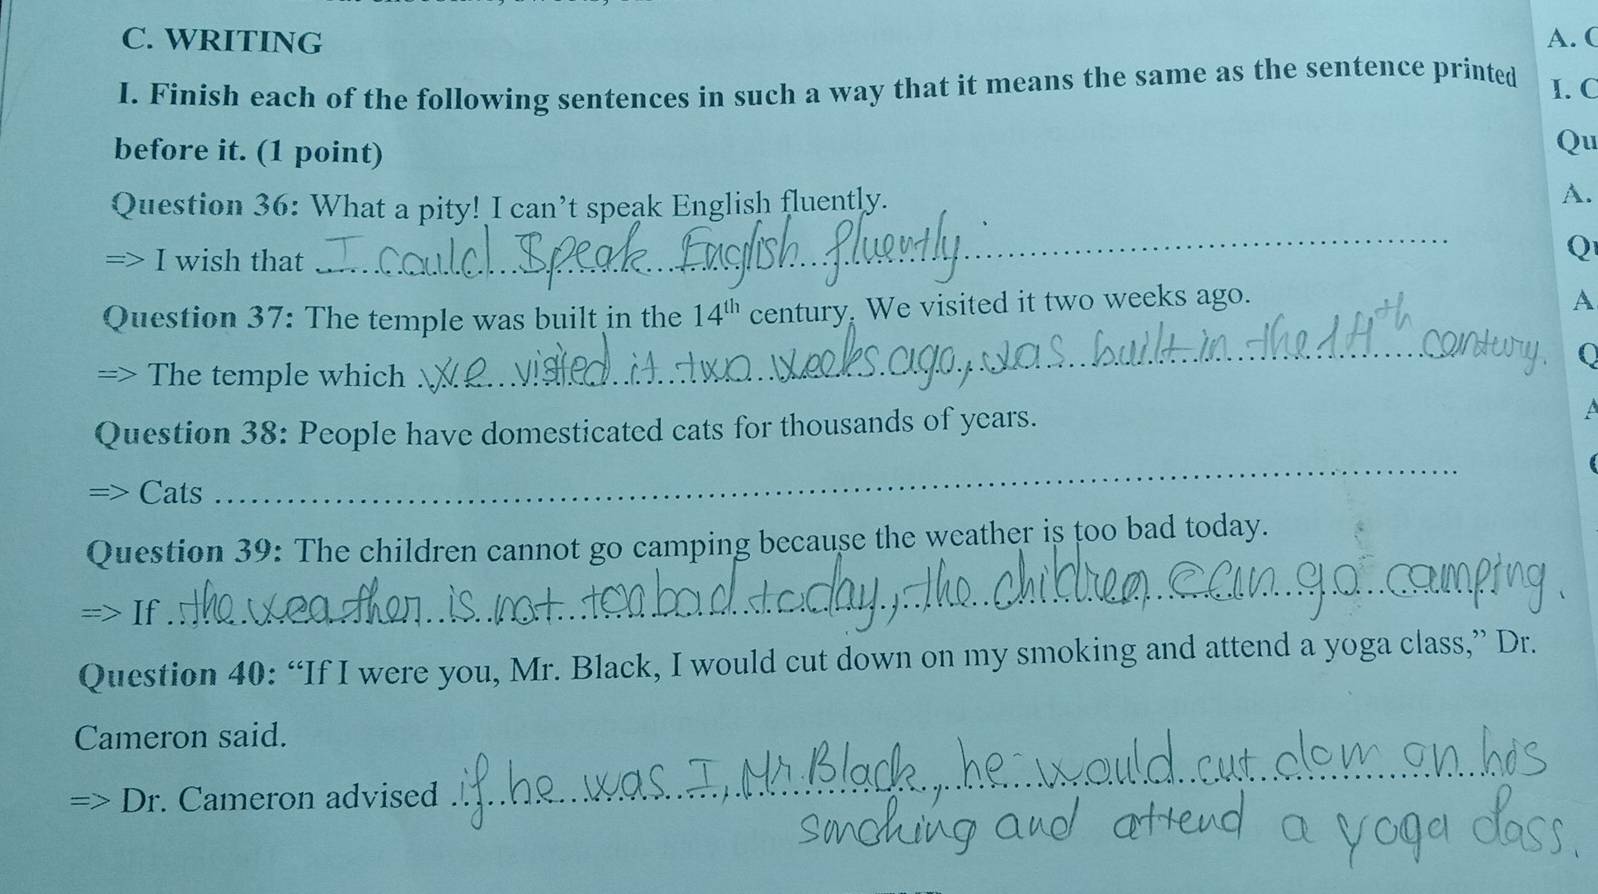 C. WRITING
I. Finish each of the following sentences in such a way that it means the same as the sentence printed
before it. (1 point)
Question 36: What a pity! I can't speak English fluently.
=> I wish that I could speak English fluently.
Question 37: The temple was built in the 14th century. We visited it two weeks ago.
=> The temple which we visited it two weeks ago, was built in the 14th century.
Question 38: People have domesticated cats for thousands of years.
=> Cats
Question 39: The children cannot go camping because the weather is too bad today.
=> If the weather is not too bad today, the children can go camping.
Question 40: “If I were you, Mr. Black, I would cut down on my smoking and attend a yoga class,” Dr.
Cameron said.
=> Dr. Cameron advised if he was I, Mr. Black, he would cut down on his
smoking and attend a yoga class.
A.
I.
Qu
A.
Q
A
Q
A